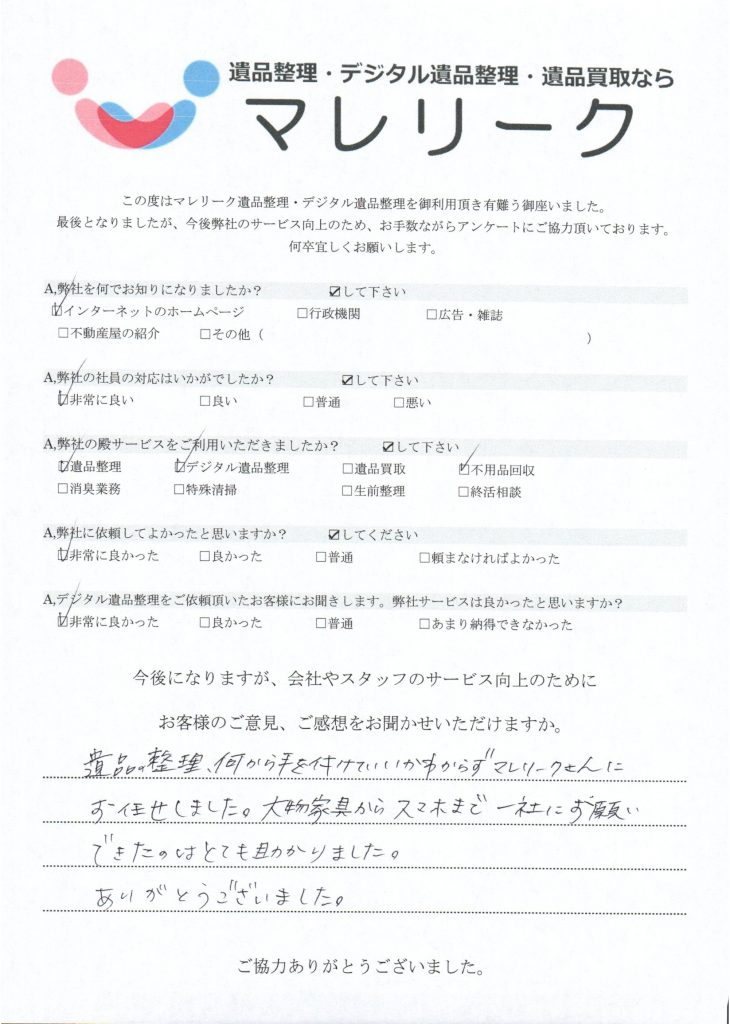 遺品整理・デジタル遺品整理・遺品買取なら
マレリーク
この度はマレリーク遺品整理・デジタル遺品整理を御利用頂き有難う御座いました。
最後となりましたが、今後弊社のサービス向上のため、お手数ながらアンケートにご協力頂いております。
何卒宜しくお願いします。
A,弊社を何でお知りになりましたか? ☑して下さい
☑インターネットのホームページ □行政機関 □広告・雑誌
□不動産屋の紹介 □その他（ ）
A,弊社の社員の対応はいかがでしたか? ☑して下さい
☑非常に良い □良い □普通 □悪い
A,弊社の殿サービスをご利用いただきましたか? ☑して下さい
☑遺品整理 ☑デジタル遺品整理 □遺品買取 ☑不用品回収
□消臭業務 □特殊清掃 □生前整理 □終活相談
A,弊社に依頼してよかったと思いますか? ☑してください
☑非常に良かった □良かった □普通 □頼まなければよかった
A,デジタル遺品整理をご依頼頂いたお客様にお聞きします。弊社サービスは良かったと思いますか?
☑非常に良かった □良かった □普通 □あまり納得できなかった
今後になりますが、会社やスタッフのサービス向上のために
お客様のご意見、ご感想をお聞かせいただけますか。
遺品の整理、何から手を付けていいかわからずマレリークさんに
お任せしました。大物家具からスマホまで一社にお願い
できたのはとても助かりました。
ありがとうございました。
ご協力ありがとうございました。